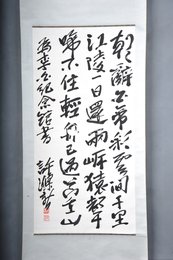 朝辭白帝彩雲間千里
江陵一日還兩岸猿聲
啼不住輕舟已過萬重山
為李白紀念館書